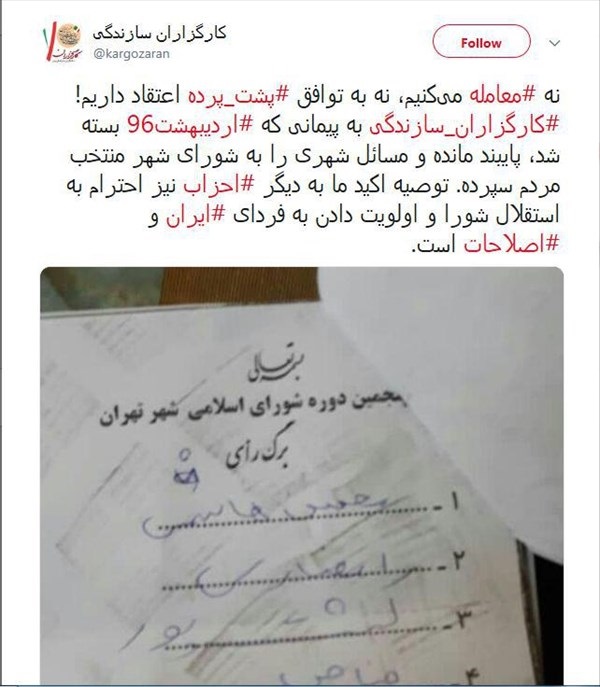 کارگزاران سازندگی
@kargozaran
Follow
نه #معامله می‌کنیم، نه به توافق #پشت_پرده اعتقاد داریم!
#کارگزاران_سازندگی به پیمانی که #اردیبهشت96 بسته
شد، پایبند مانده و مسائل شهری را به شورای شهر منتخب
مردم سپرده. توصیه اکید ما به دیگر #احزاب نیز احترام به
استقلال شورا و اولویت دادن به فردای #ایران و
#اصلاحات است.
بسمه تعالی
پنجمین دوره شورای اسلامی شهر تهران
برگ رأی
۱ - محسن هاشمی
۲ -
۳ -
۴ -